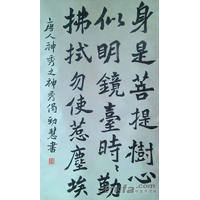 身是菩提樹心
似明鏡臺時〻勤
拂拭勿使惹塵埃
唐人神秀之神秀偈勁慧書